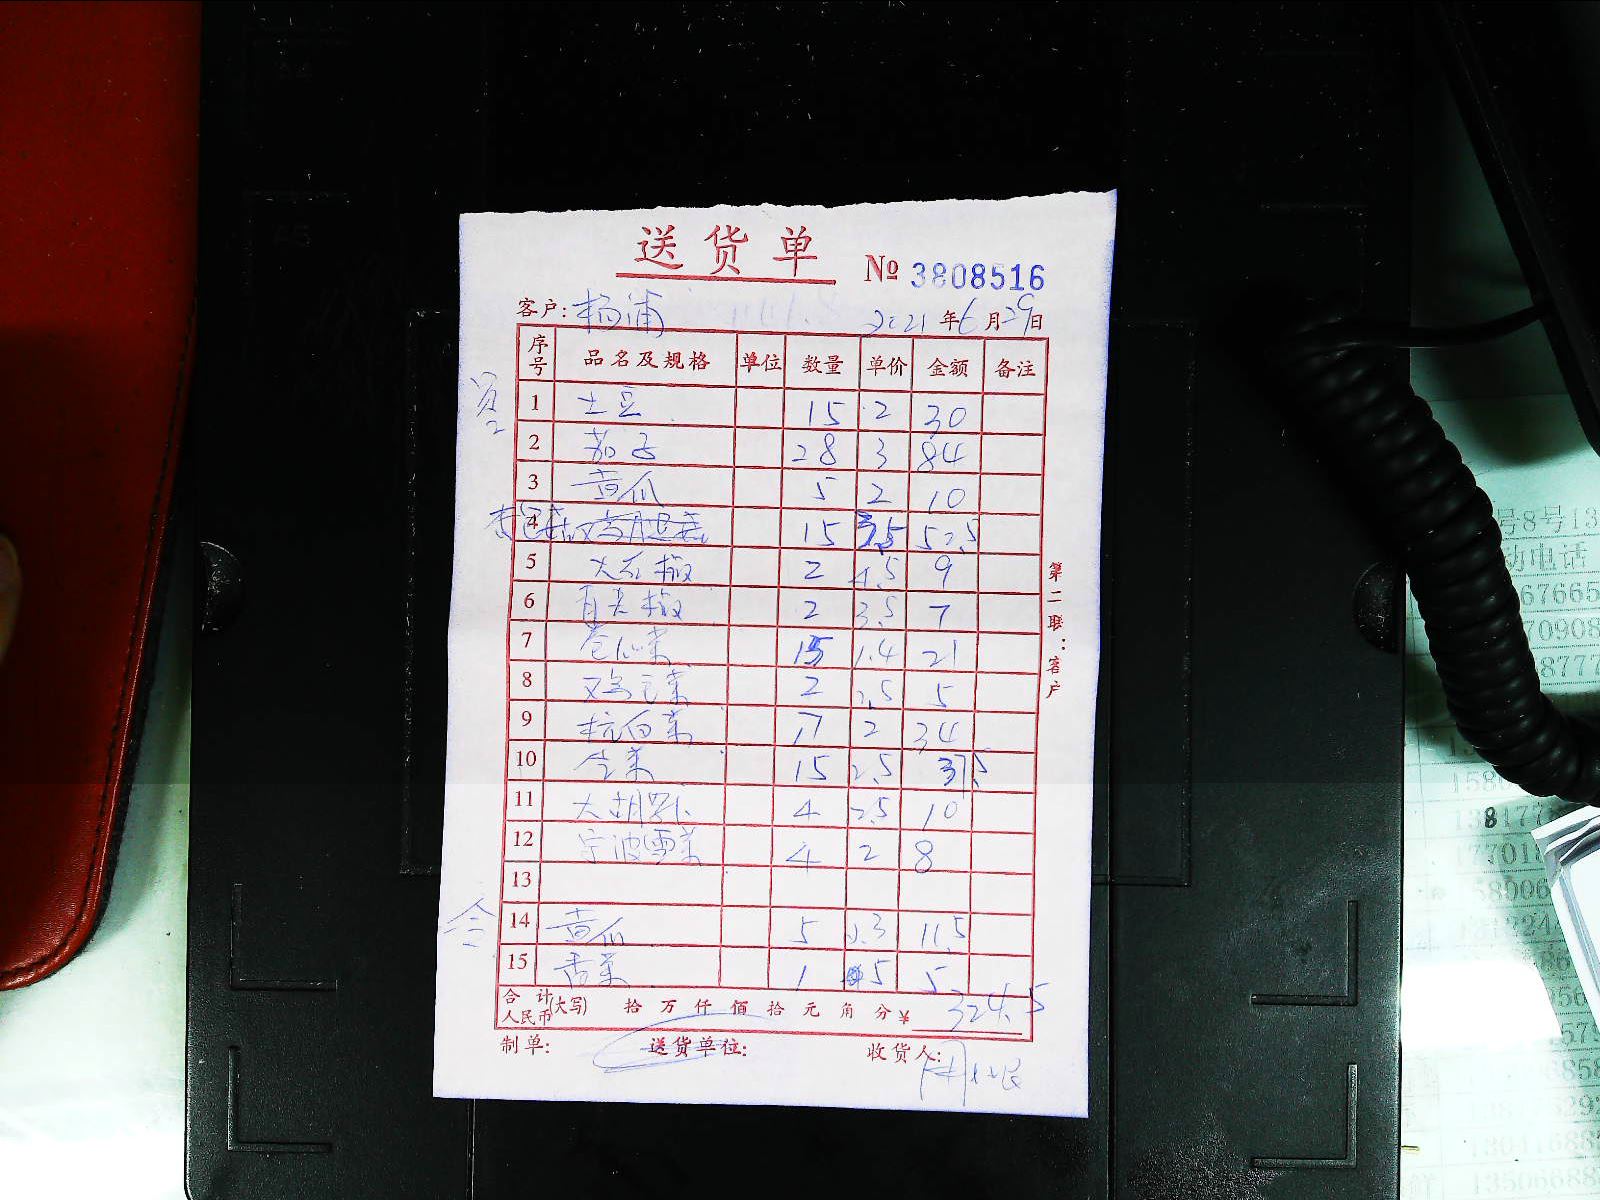 送货单
№ 3808516
客户: 杨浦 2021年6月29日
序号 品名及规格 单位 数量 单价 金额 备注
1 土豆 15 2 30
2 茄子 28 3 84
3 黄瓜 5 2 10
4 15 3.5 52.5
5 大红椒 2 4.5 9
6 青尖椒 2 3.5 7
7 卷心菜 15 1.4 21
8 鸡毛菜 2 2.5 5
9 杭白菜 17 2 34
10 15 2.5 37.5
11 大胡萝卜 4 2.5 10
12 宁波雪菜 4 2 8
13
14 黄瓜 5 2.3 11.5
15 香菜 1 5 5
合计人民币(大写) 拾 万 仟 佰 拾 元 角 分 ¥ 324.5
制单: 送货单位: 收货人:
第二联:客户